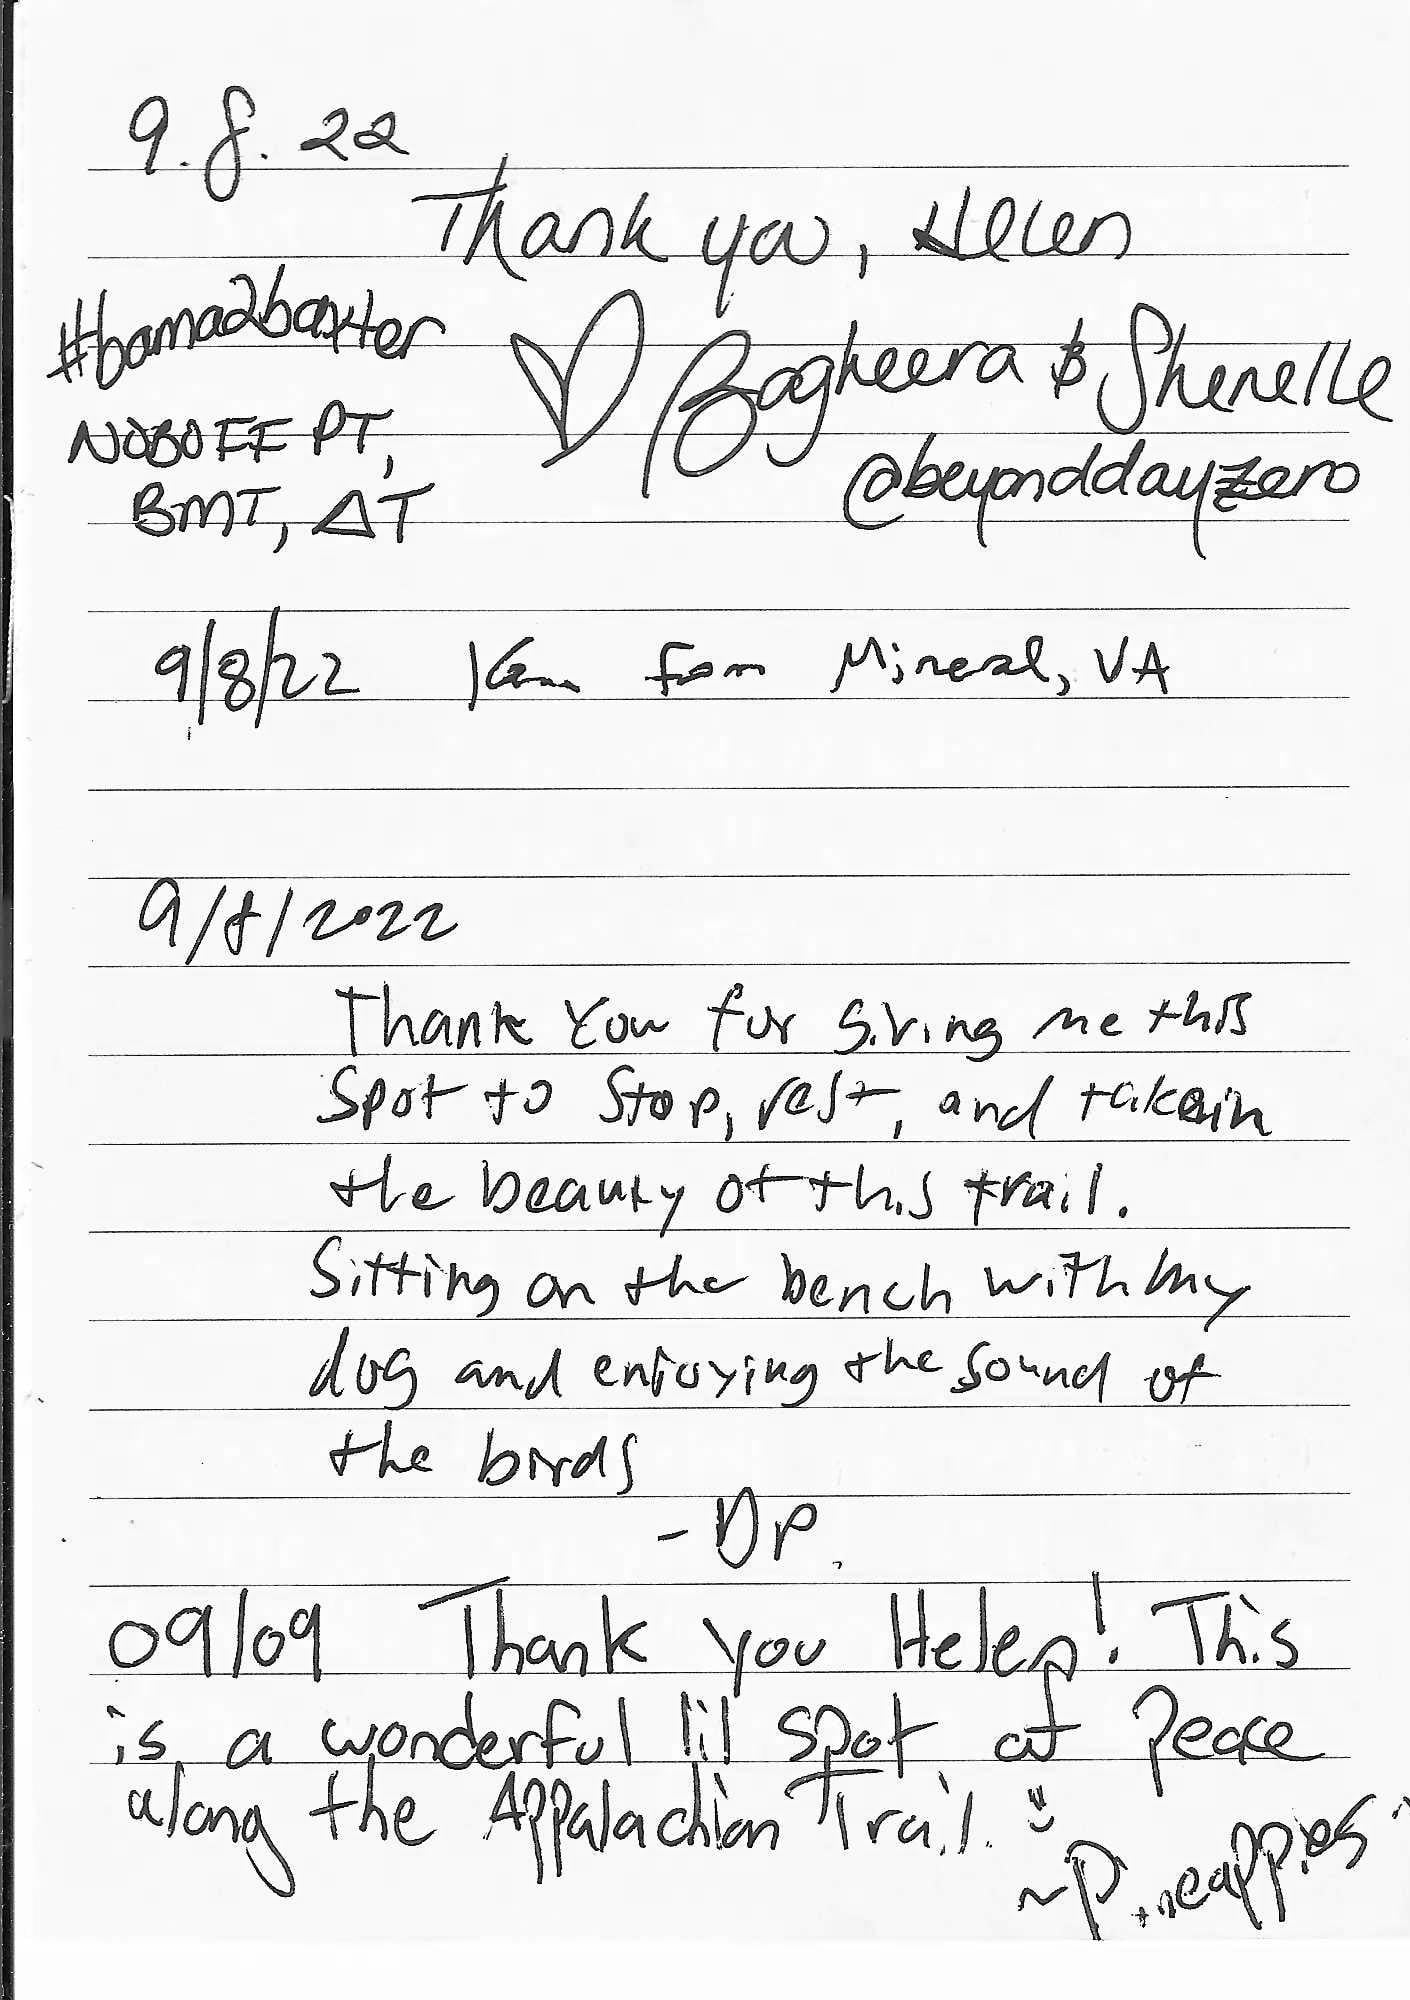 9.8.22
Thank you, Helen
#bama2baxter
♡ Bagheera & Shenelle
NOBO FF PT,
@beyonddayzero
BMT, ΔT
9/8/22 from Mineral, VA
9/8/2022
Thank You for giving me this
spot to stop, rest, and take in
the beauty of this trail.
Sitting on the bench with my
dog and enjoying the sound of
the birds
- DP.
09/09 Thank you Helen! This
is a wonderful lil spot of peace
along the Appalachian Trail. :)
~Pineappies